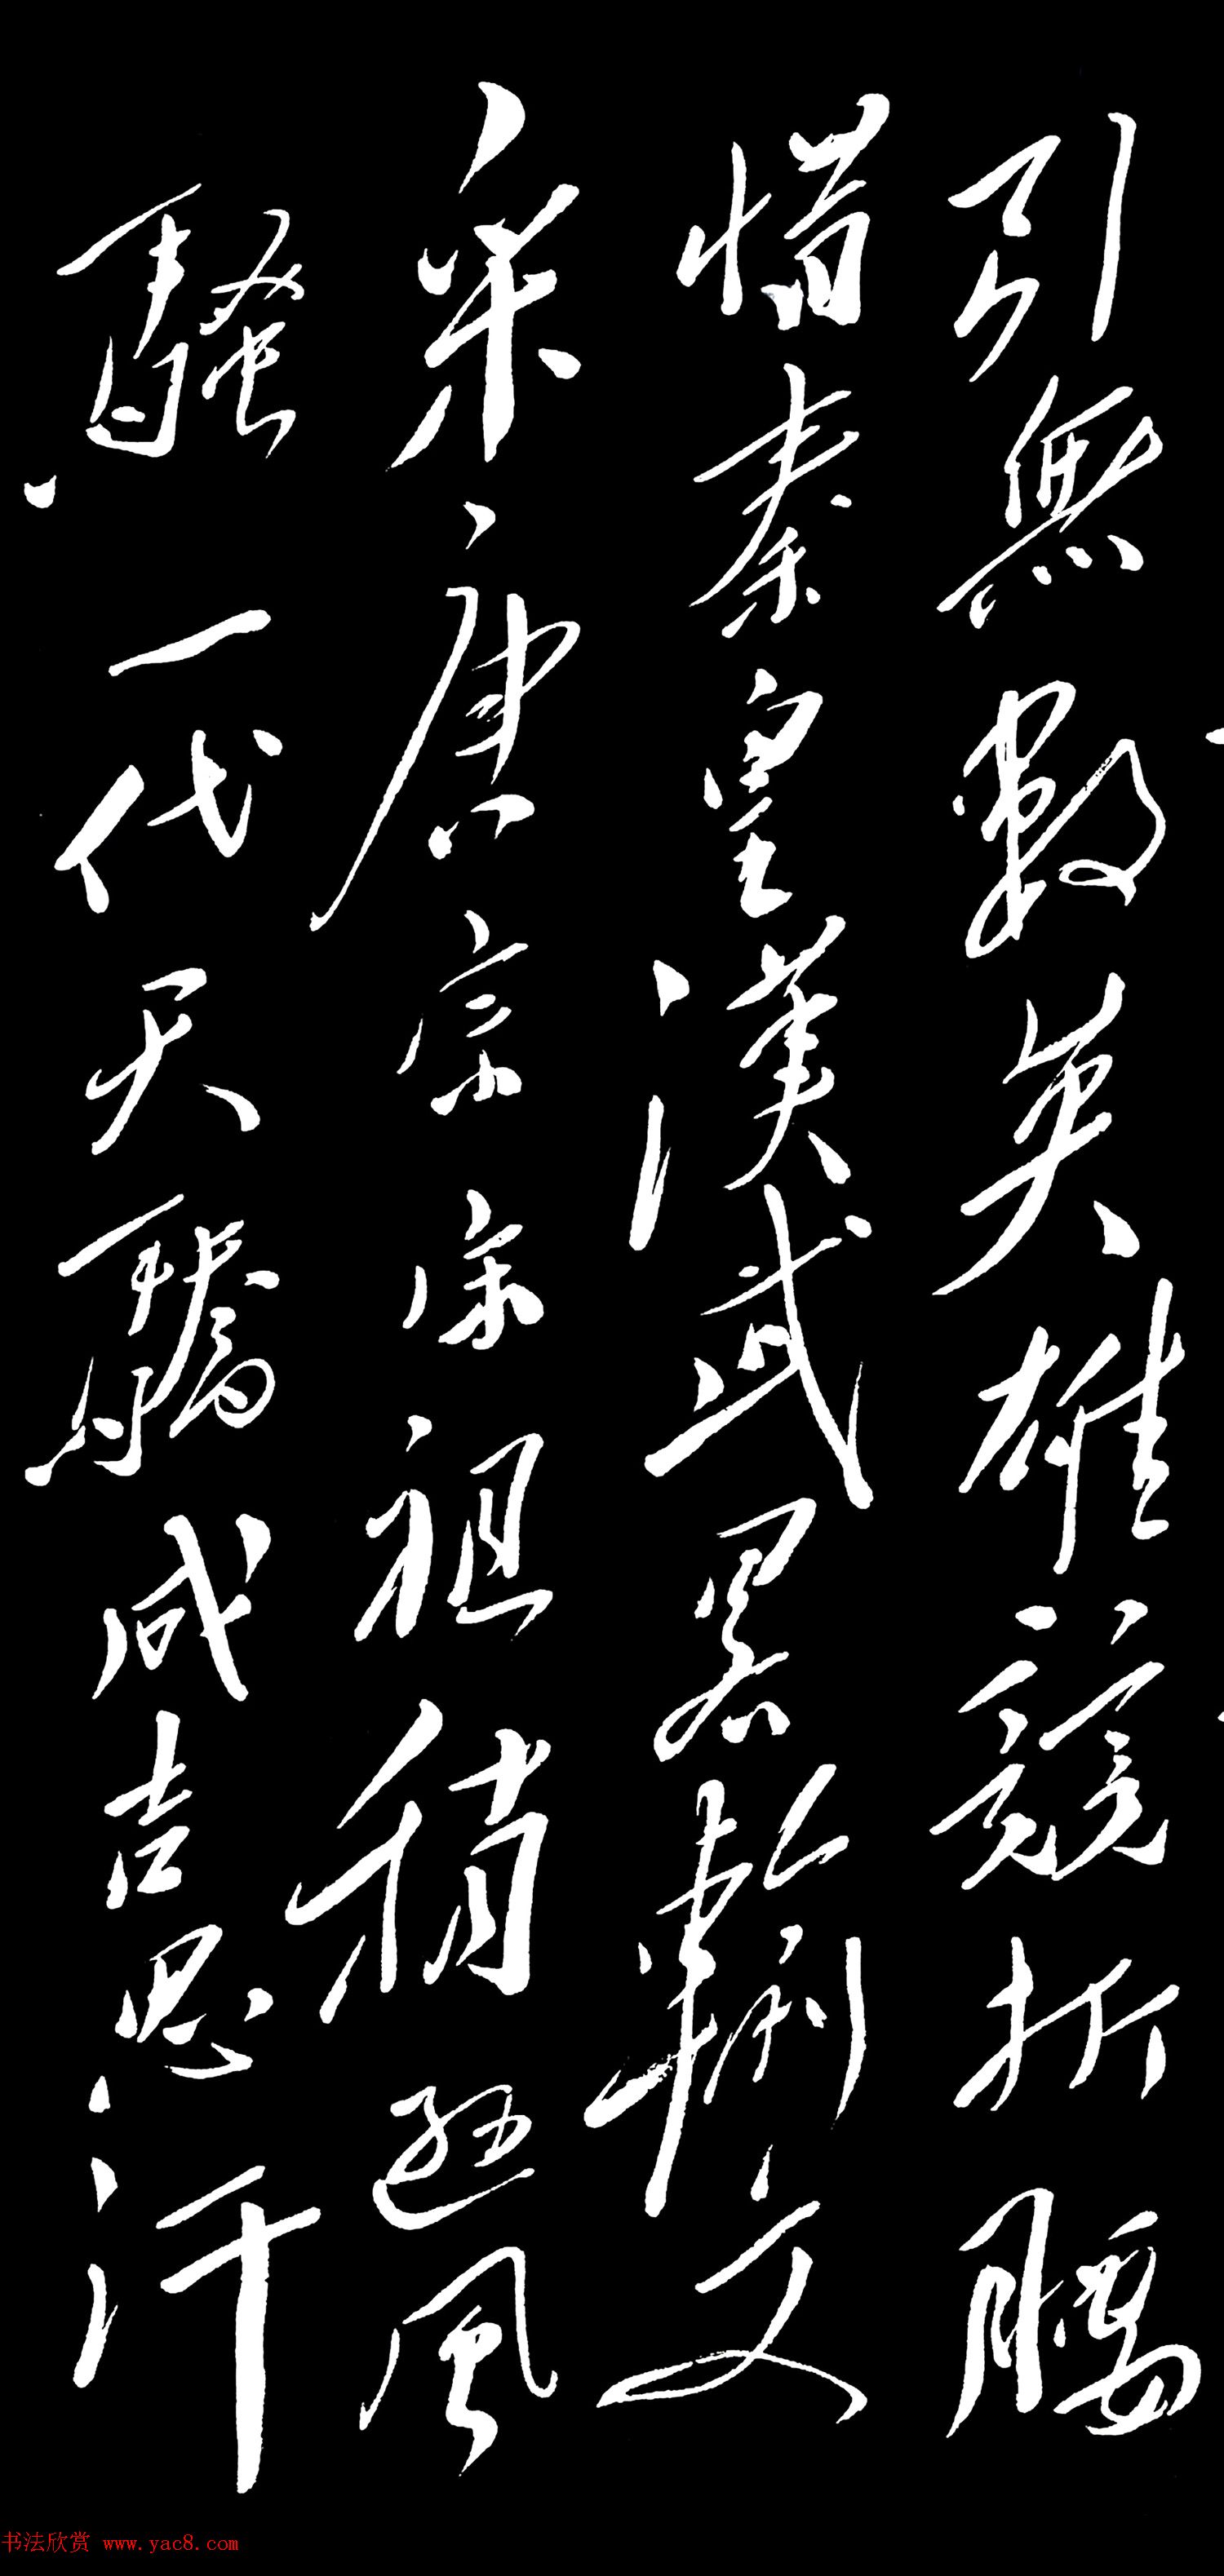 引無數英雄競折腰
惜秦皇漢武畧輸文
采唐宗宋祖稍遜風
騷一代天驕成吉思汗
书法欣赏 www.yac8.com